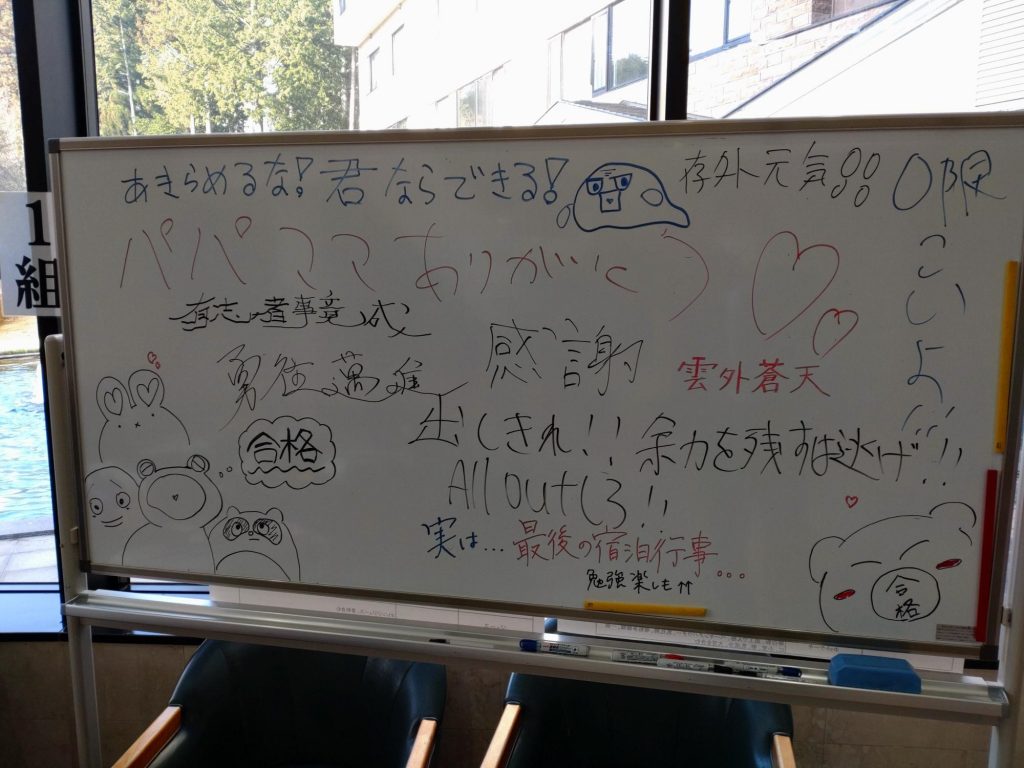 あきらめるな！君ならできる！
存外元気
0限
こいよ
パパママありがとう
1組
有志者事竟成
勇往邁進
感謝
雲外蒼天
合格
出しきれ！！余力を残すは逃げ！！
All outしろ！！
実は…最後の宿泊行事…
勉強楽しも↑↑
合格